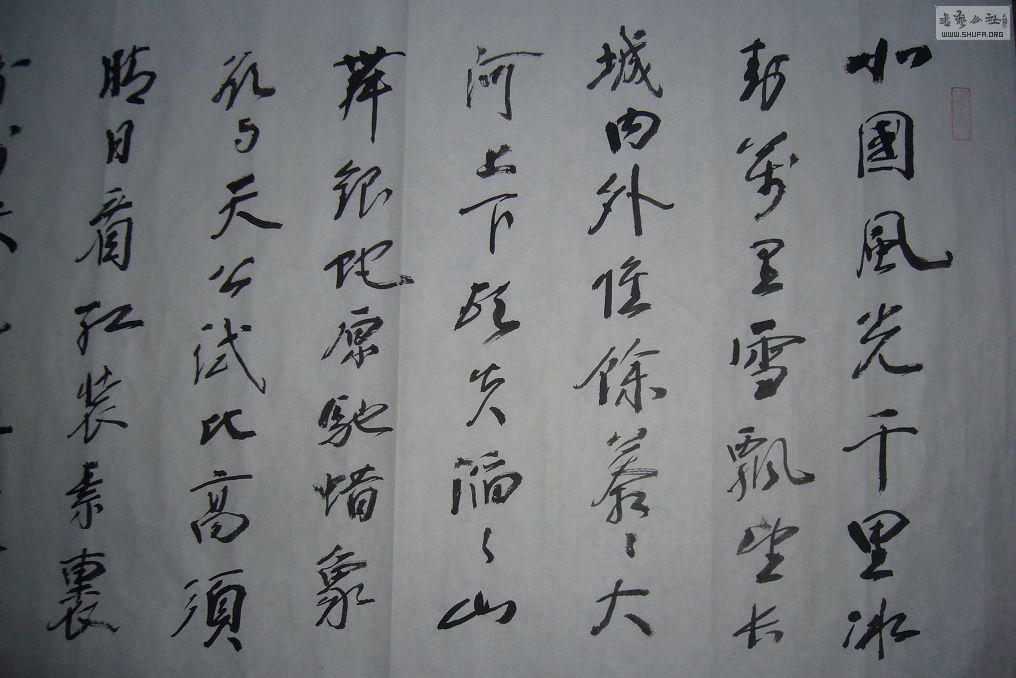 北國風光千里冰
封萬里雪飄望长
城内外惟餘莽〻大
河上下頓失滔〻山
舞銀蛇原馳蜡象
欲与天公试比高須
晴日看红装素裹
書艺公社
WWW.SHUFA.ORG